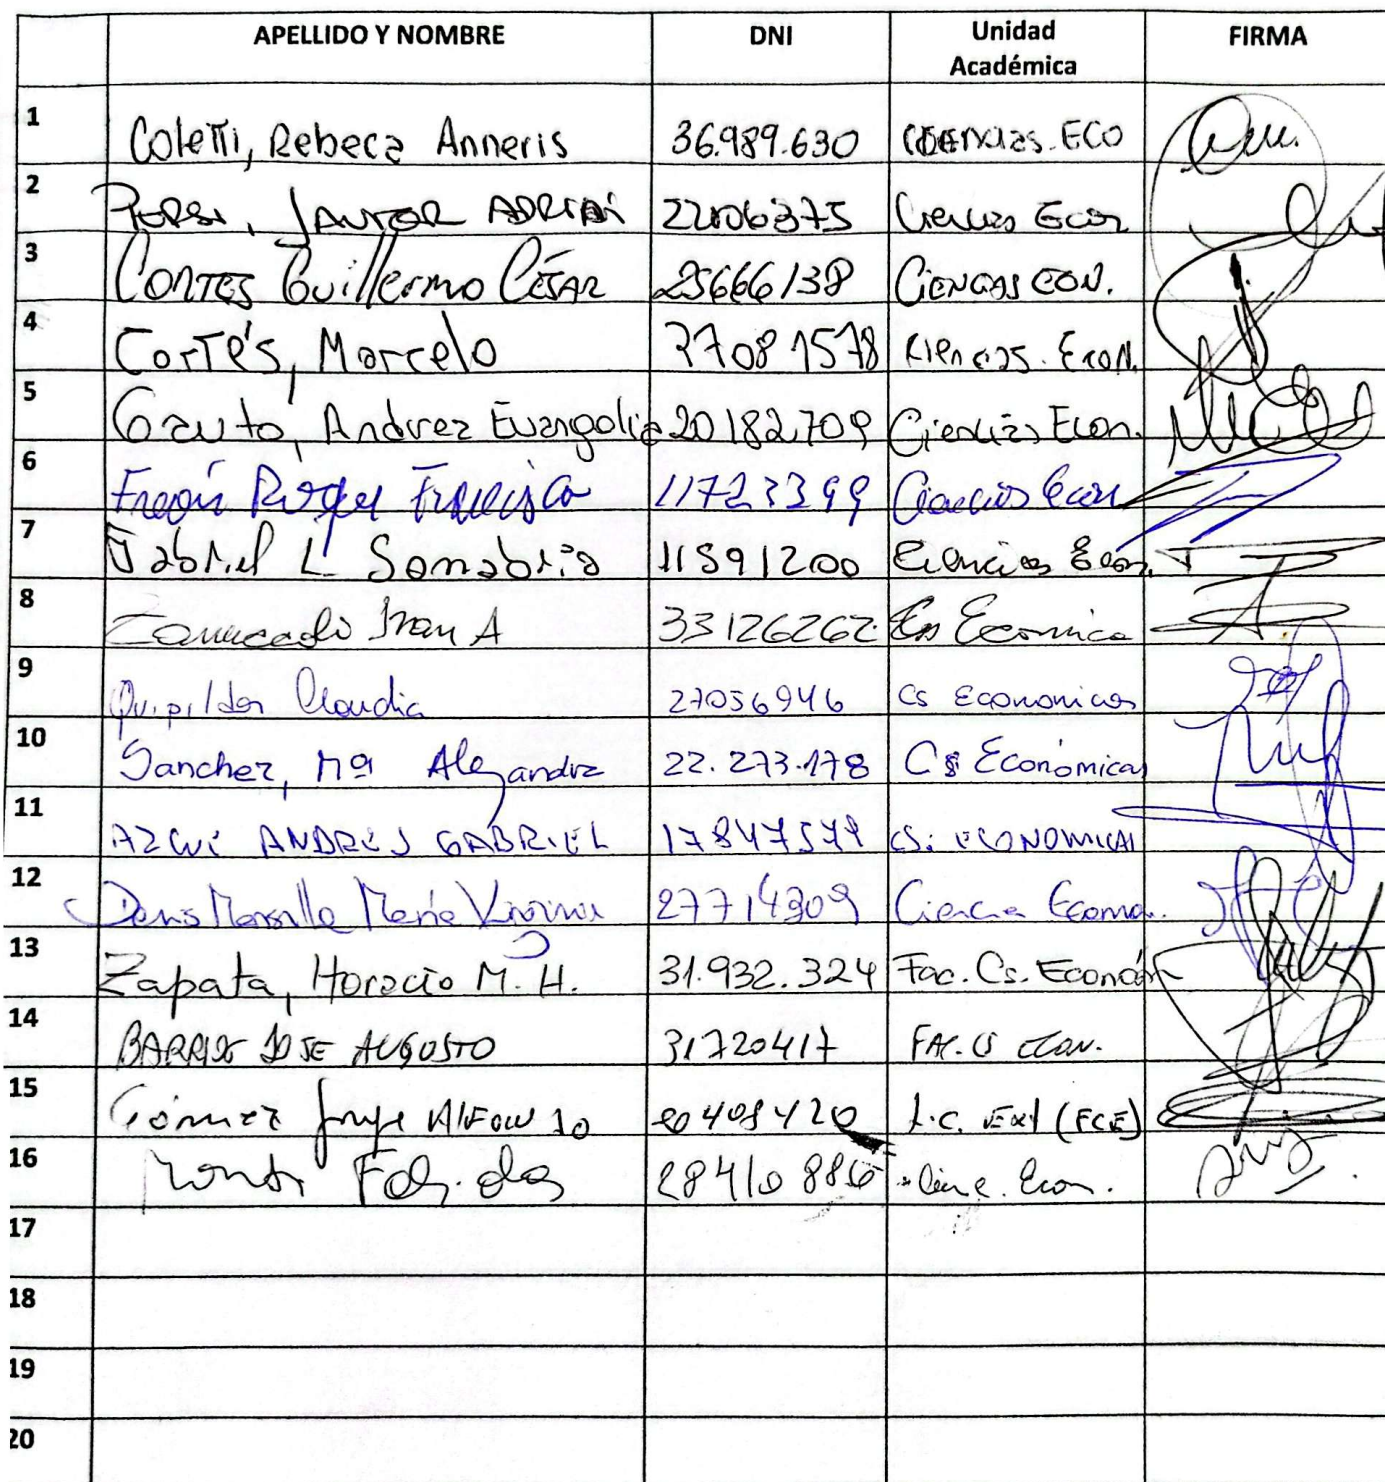 APELLIDO Y NOMBRE DNI Unidad Académica FIRMA
1 Coletti, Rebeca Anneris 36.989.630 Ciencias. ECO
2 JAVIER ADRIAN Ciencias Econ
3 CORTES Guillermo CÉSAR 25666138 CIENCIAS ECON.
4 Cortés, Marcelo 27081578 Ciencias. Econ.
5 Gauto, Andrea Evangelina 20182709 Ciencias Econ.
6 Roger Francisco 11723399 Ciencias Econ
7 Gabriel L. Sanabria 11591200 Ciencias Econ.
8 Ivan A 33126262 Cs Economica
9 Quipildor Claudia 27056946 Cs Economicas
10 Sanchez, Mª Alejandra 22.273.178 Cs Económicas
11 ANDRES GABRIEL 17847579 CS. ECONOMICAS
12 Denis Maria 27714909 Ciencia Econo.
13 Zapata, Horacio M. H. 31.932.324 Fac. Cs. Económ
14 JOSE AUGUSTO 31720417 FAC. CS ECON.
15 Gómez Jorge Alfonso 20408420 (FCE)
16 Econ.
17
18
19
20